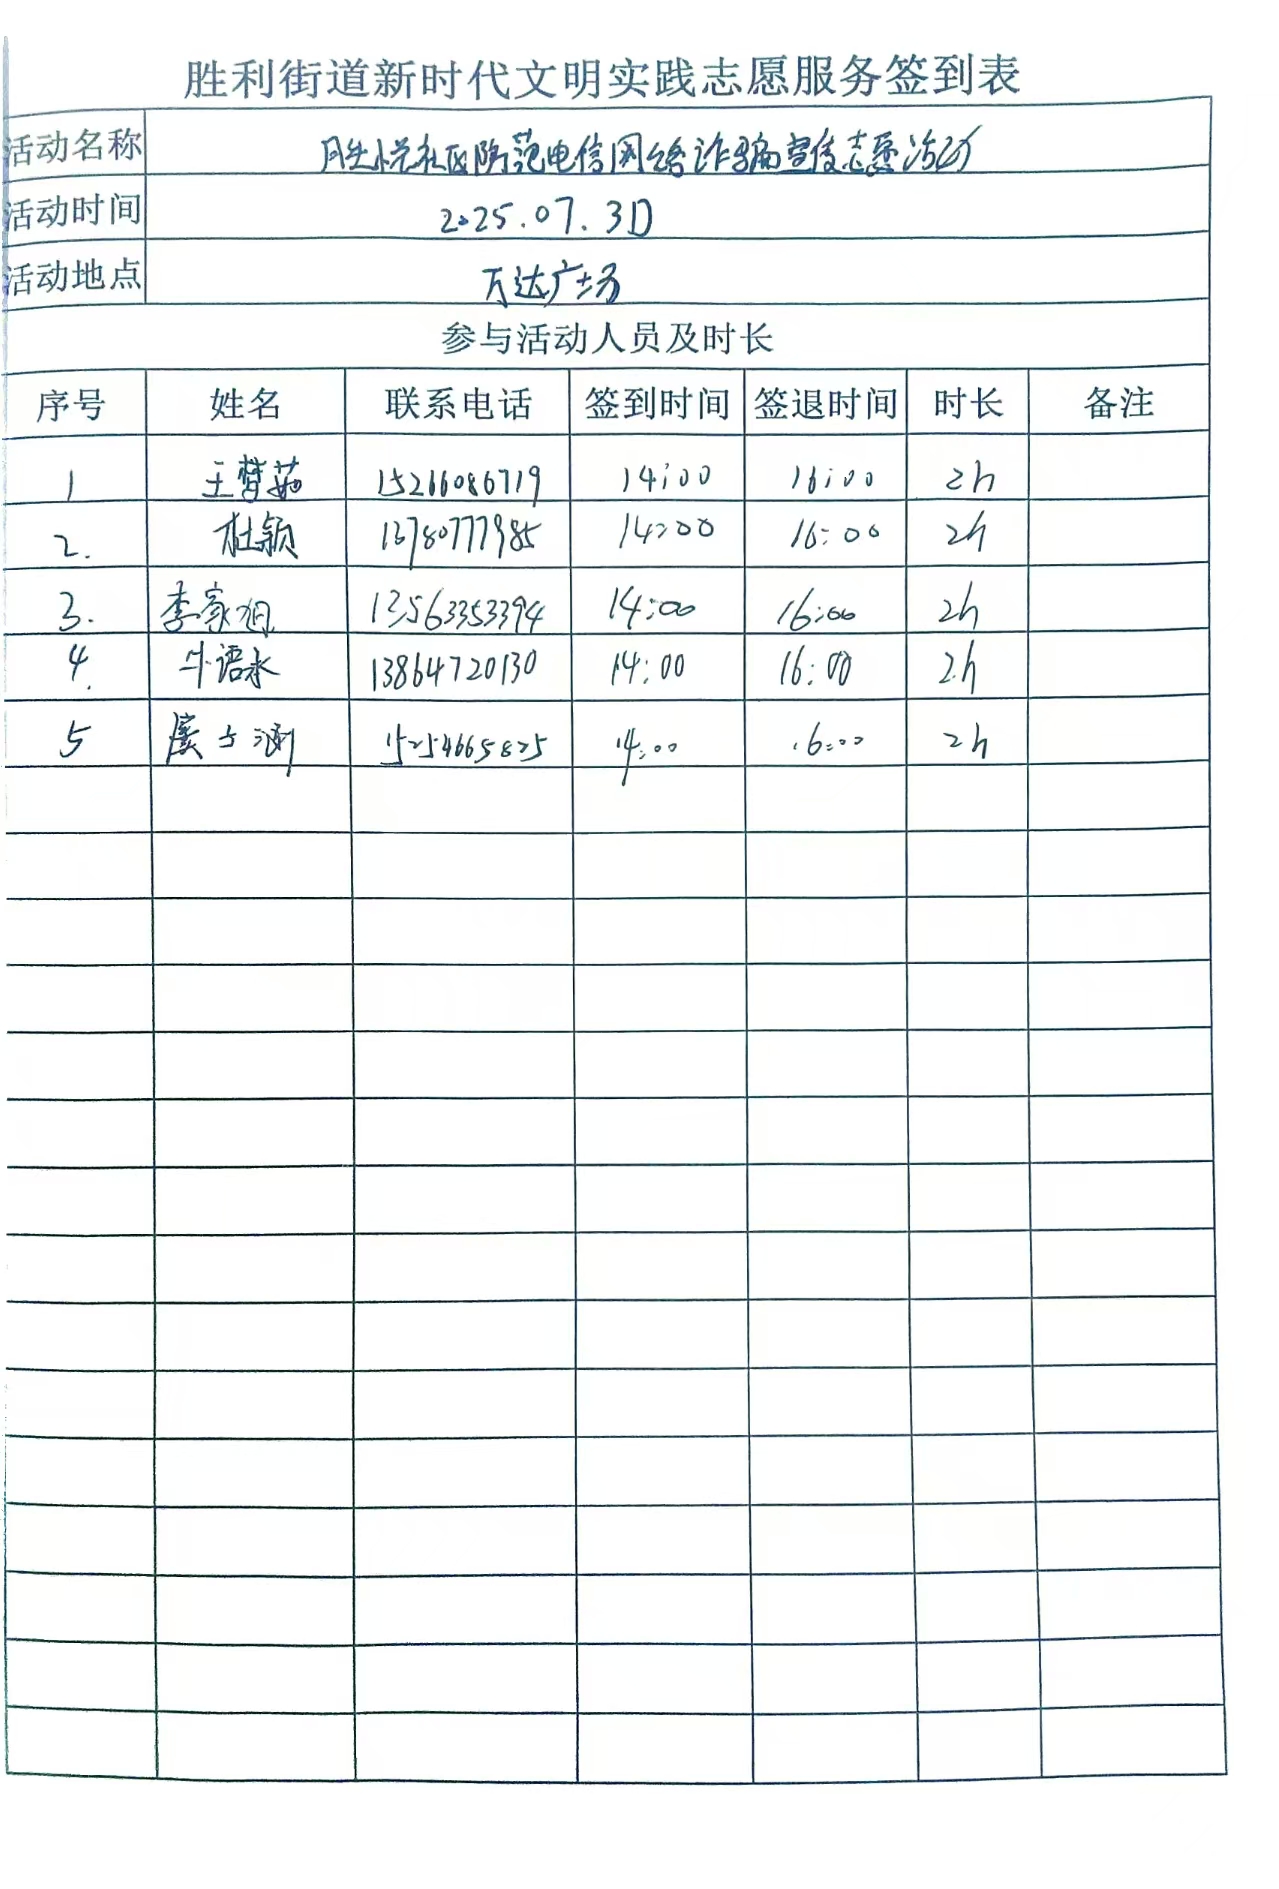 胜利街道新时代文明实践志愿服务签到表
活动名称 胜悦社区防范电信网络诈骗宣传志愿活动
活动时间 2025.07.30
活动地点 万达广场
参与活动人员及时长
序号 姓名 联系电话 签到时间 签退时间 时长 备注
1 王梦茹 15266086719 14:00 16:00 2h
2. 杜颖 13780777985 14:00 16:00 2h
3. 李家旭 13563353394 14:00 16:00 2h
4. 牛语永 13864720130 14:00 16:00 2h
5 15254665825 14:00 16:00 2h